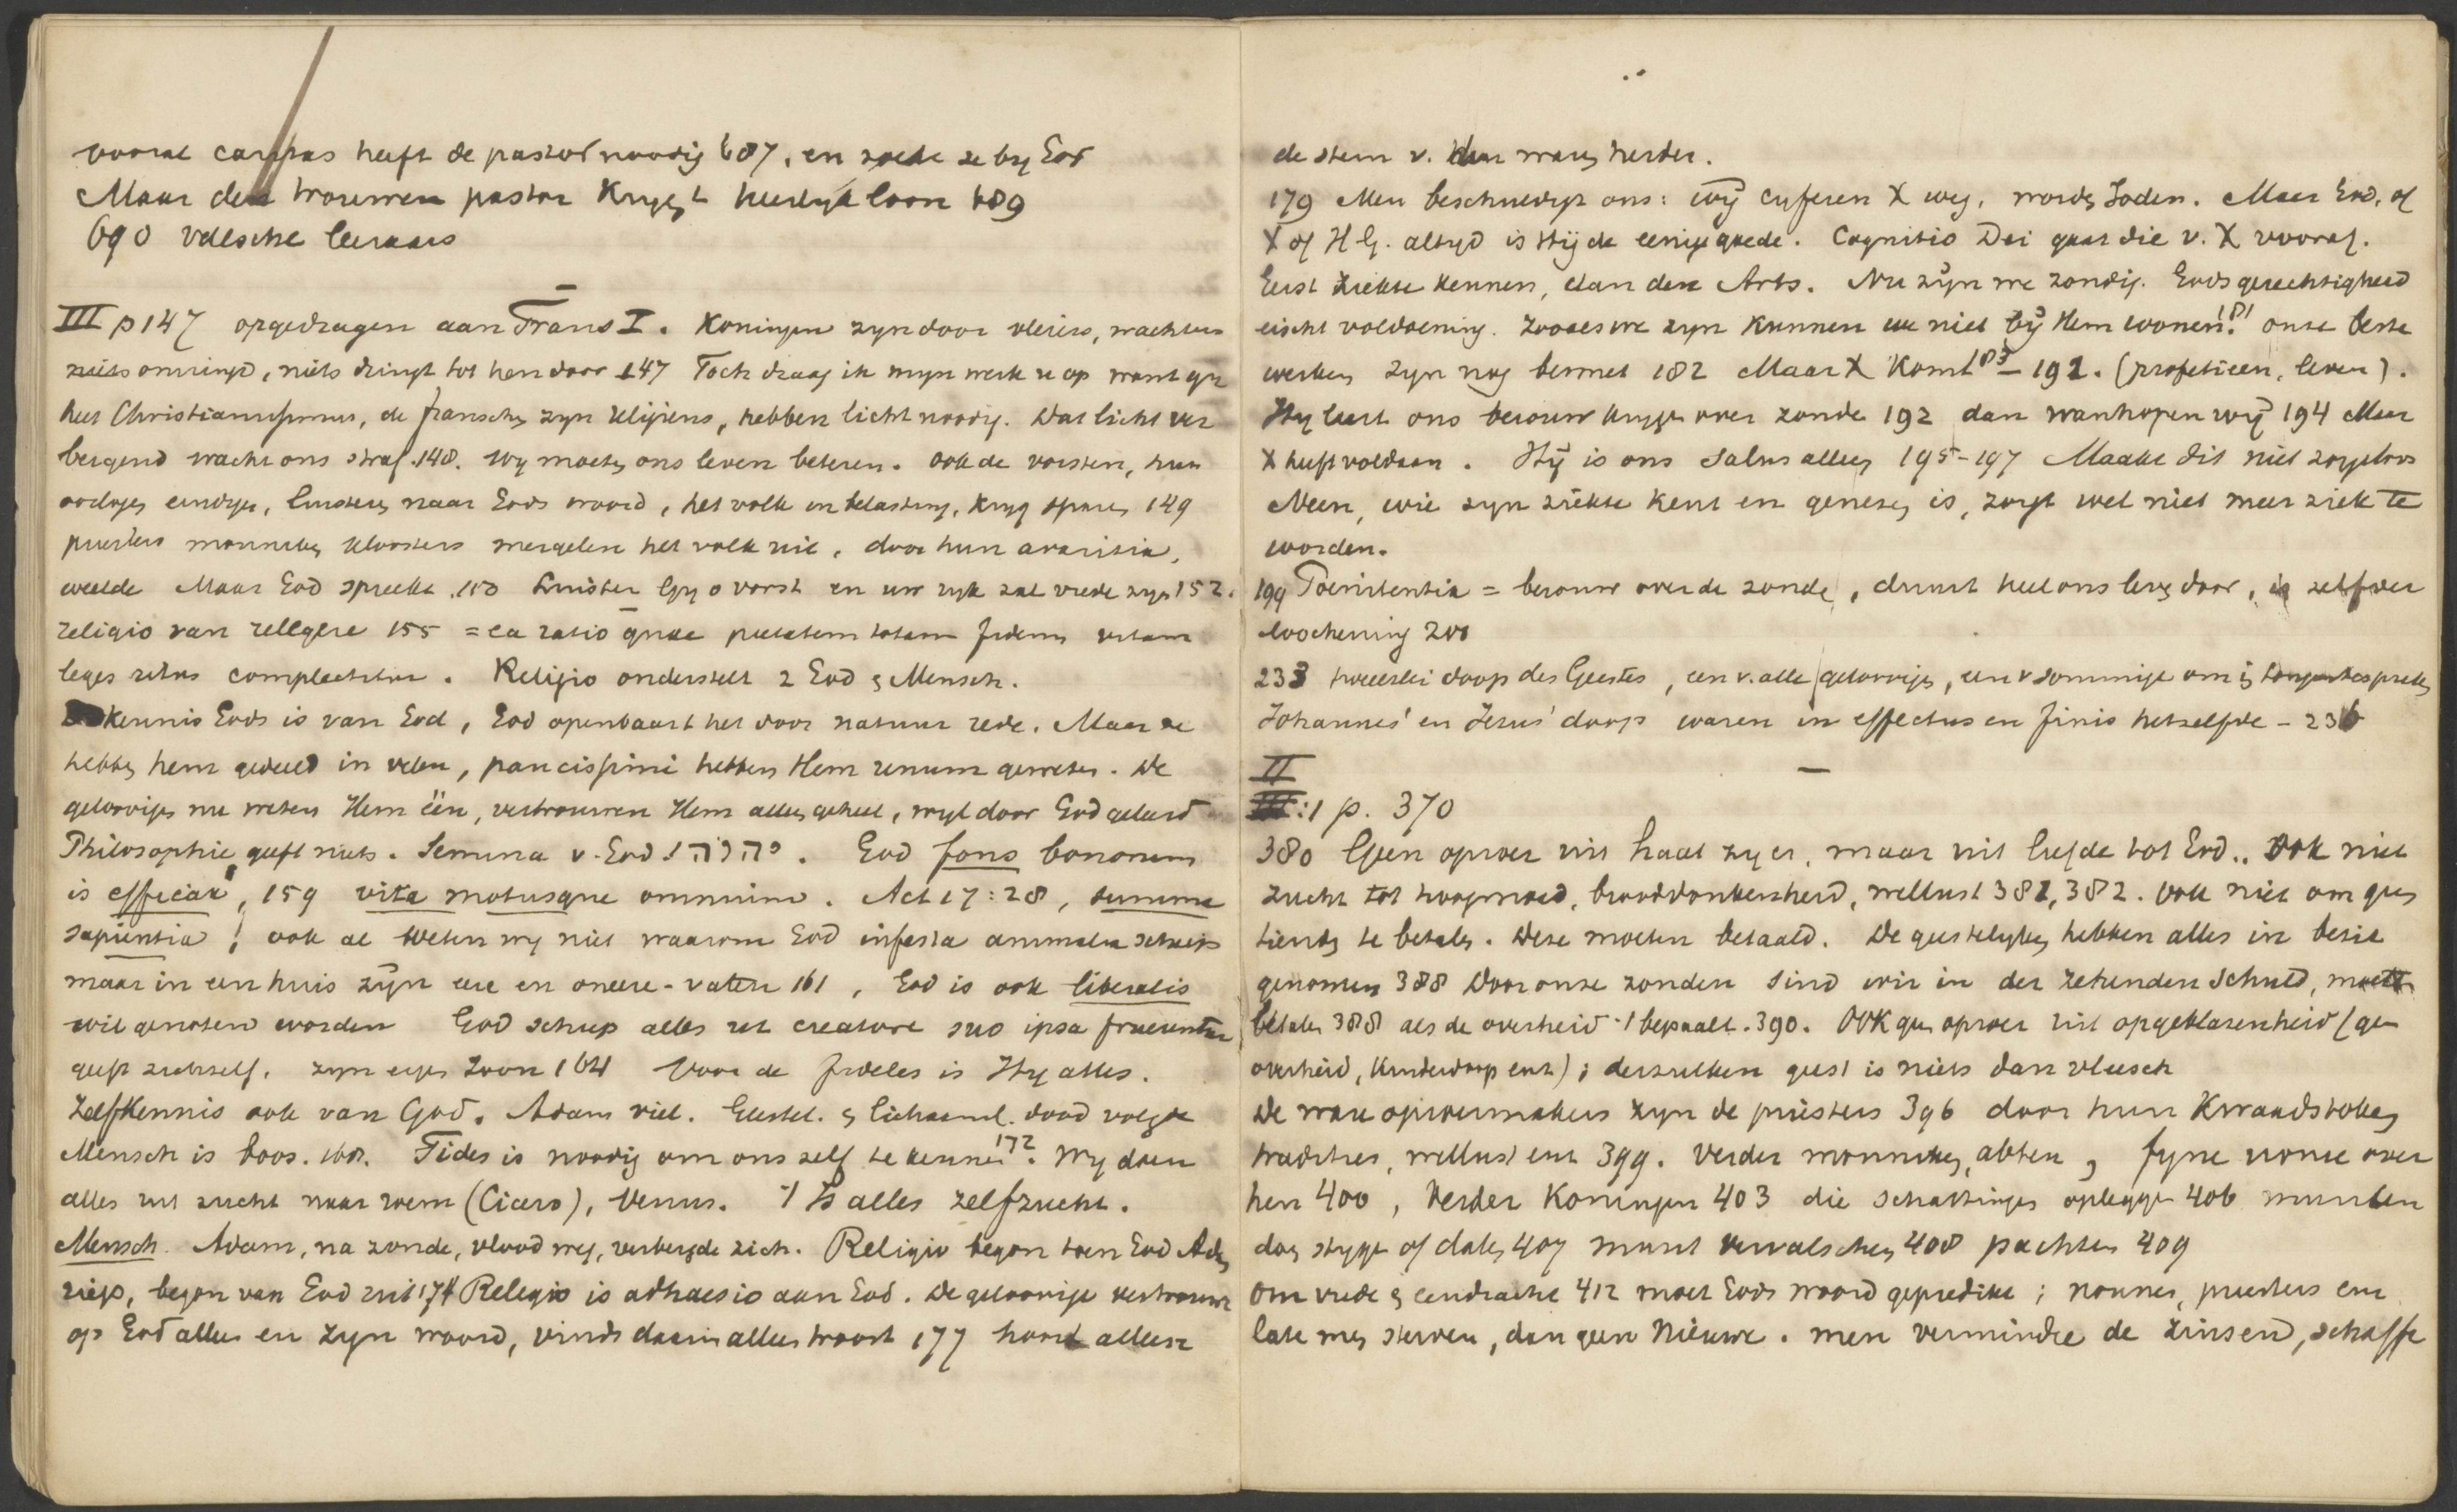 vooral caritas heeft de pastor noodig 687, en zoeke ze by God
Maar den trouwen pastor krygt heerlyk loon 689
690 valsche leeraars
III p 147 opgedragen aan Frans I. Koningen zyn door vleiers, wachters
niets omringd, niets dringt tot hen door 147 Toch draag ik myn werk u op want gy
het Christianissimus, de franschen zyn religieus, hebben licht noodig. Dat licht ver
bergend wacht ons straf. 148. Wy moeten ons leven beteren. Ook de vorsten, hun
oorlogen eindigen, luisteren naar Gods woord, het volk in belasting, kryg sparen 149
priesters monniken kloosters mergelen het volk uit, door hun avaritia,
weelde Maar God spreekt. 150 Luister Gy o vorst en uw ryk zal vrede zyn 152.
religio van relegere 155 = ea ratio quae pietatem totam fidem vitam
leges ritus complectitur. Religio onderstelt 2 God en Mensch.
kennis Gods is van God, God openbaart het door natuur rede. Maar ze
hebben hem gedeeld in velen, paucissimi hebben Hem unum geweten. De
geloovigen nu weten Hem één, vertrouwen Hem alles geheel, wyl door God geleerd
Philosophie geeft niets. Semina v. God! יהוה. God fons bonorum
is efficax, 159 vita motusque omnium. Act 17:28, summa
sapientia; ook al weten wy niet waarom God infesta animalia schiep
maar in een huis zyn eere en oneere-vaten 161, God is ook liberalis
wil genoten worden God schiep alles ut creatore suo ipsa fruerentur
geeft zichzelf, zyn eigen Zoon 164 Voor de fideles is Hy alles.
Zelfkennis ook van God. Adam viel. Geestel. en lichaaml. dood volgde
Mensch is boos. 168. Fides is noodig om ons zelf te kennen 172. Wy doen
alles uit zucht naar roem (Cicero), Venus. 't Is alles zelfzucht.
Mensch. Adam, na zonde, vlood weg, verbergde zich. Religio begon toen God Adam
riep, begon van God uit 174 Religio is adhaesio aan God. De geloovige vertrouwt
op God alles en Zyn woord, vindt daarin alles troost 177 hoort alleen
de stem v. den waren herder.
179 Men beschuldigt ons: wy cyferen X weg, worden Joden. Maar God, of
X of H G. altyd is Hij de eenige goede. Cognitio Dei gaat die v. X vooraf.
Eerst ziekte kennen, dan den Arts. Nu zyn we zondig. Gods gerechtigheid
eischt voldoening. Zooals we zyn kunnen we niet bij Hem wonen 181! onze beste
werken zyn nog besmet 182 Maar X komt 183-192. (profetieen, leven).
Hy leert ons berouw krygen over zonde 192 dan wanhopen wij 194 Maar
X heeft voldaan. Hij is ons salus alleen 195-197 Maakt dit niet zorgeloos
Neen, wie zyn ziekte kent en genezen is, zorgt wel niet meer ziek te
worden.
199 Poenitentia = berouw over de zonde, duurt heel ons leven door, is zelfver
loochening 200
233 tweeërlei doop des Geestes, een v. alle geloovigen, een v sommige om in tongen te spreken
Johannes' en Jezus' doop waren in effectus en finis hetzelfde - 236
II
III:1 p. 370
380 Geen oproer uit haat zy er, maar uit liefde tot God.. Ook niet
zucht tot hoogmoed, brooddronkenheid, wellust 381, 382. Ook niet om geen
tienden te betalen. Deze moeten betaald. De geestelyken hebben alles in bezit
genomen 388 Door onze zonden sind wir in der zehenden Schuld, moeten
betalen 388 als de overheid 't bepaalt. 390. Ook geen oproer uit opgeblazenheid (geen
overheid, kinderdoop enz); derzulken geest is niets dan vleesch
De ware oproermakers zyn de priesters 396 door hun kwaadstoken
tradities, wellust enz 399. Verder monniken, abten, fyne ironie over
hen 400, Verder Koningen 403 die schattingen opleggen 406 munten
doen stygen of dalen 407 munt vervalschen 408 pachten 409
Om vrede en eendracht 412 moet Gods woord gepredikt; nonnen, priesters enz
late men sterven, dan geen nieuwe. men vermindre de zinsen, schaffe